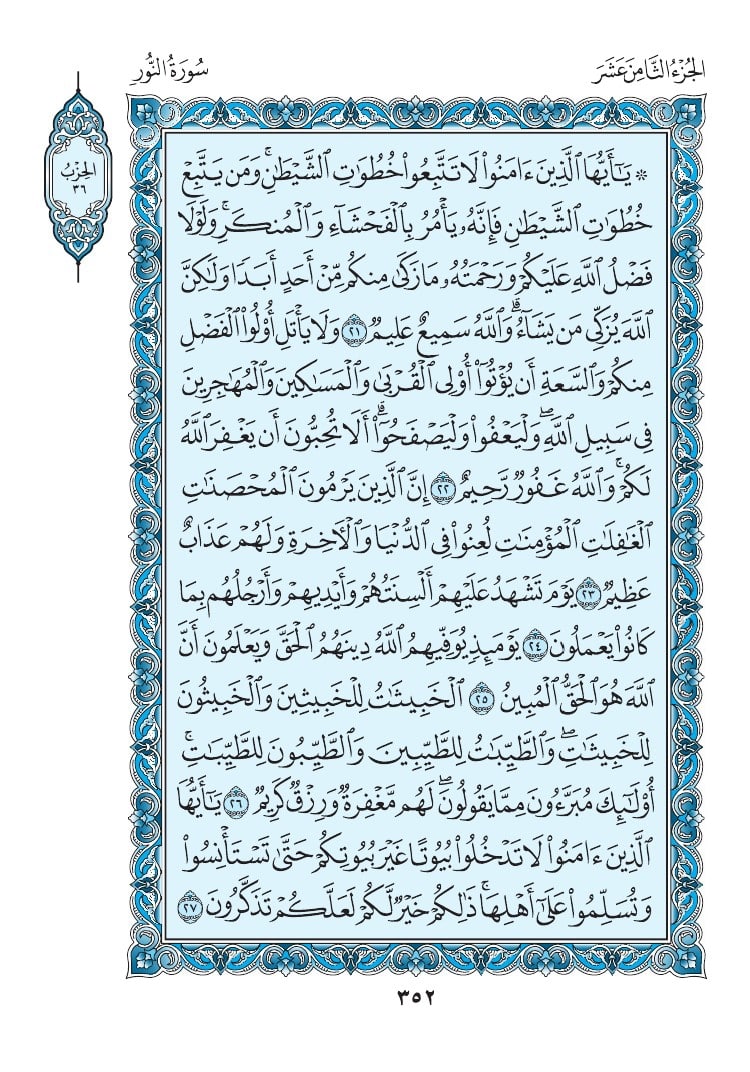 الجُزْءُ الثَّامِنَ عَشَرَ
سُورَةُ النُّورِ
الحِزْبُ
٣٦
۞ يَٰٓأَيُّهَا ٱلَّذِينَ ءَامَنُوا۟ لَا تَتَّبِعُوا۟ خُطُوَٰتِ ٱلشَّيْطَٰنِۚ وَمَن يَتَّبِعْ
خُطُوَٰتِ ٱلشَّيْطَٰنِ فَإِنَّهُۥ يَأْمُرُ بِٱلْفَحْشَآءِ وَٱلْمُنكَرِۚ وَلَوْلَا
فَضْلُ ٱللَّهِ عَلَيْكُمْ وَرَحْمَتُهُۥ مَا زَكَىٰ مِنكُم مِّنْ أَحَدٍ أَبَدًا وَلَٰكِنَّ
ٱللَّهَ يُزَكِّى مَن يَشَآءُۗ وَٱللَّهُ سَمِيعٌ عَلِيمٌ ٢١ وَلَا يَأْتَلِ أُو۟لُوا۟ ٱلْفَضْلِ
مِنكُمْ وَٱلسَّعَةِ أَن يُؤْتُوٓا۟ أُو۟لِى ٱلْقُرْبَىٰ وَٱلْمَسَٰكِينَ وَٱلْمُهَٰجِرِينَ
فِى سَبِيلِ ٱللَّهِۖ وَلْيَعْفُوا۟ وَلْيَصْفَحُوٓا۟ۗ أَلَا تُحِبُّونَ أَن يَغْفِرَ ٱللَّهُ
لَكُمْۚ وَٱللَّهُ غَفُورٌ رَّحِيمٌ ٢٢ إِنَّ ٱلَّذِينَ يَرْمُونَ ٱلْمُحْصَنَٰتِ
ٱلْغَٰفِلَٰتِ ٱلْمُؤْمِنَٰتِ لُعِنُوا۟ فِى ٱلدُّنْيَا وَٱلْءَاخِرَةِ وَلَهُمْ عَذَابٌ
عَظِيمٌ ٢٣ يَوْمَ تَشْهَدُ عَلَيْهِمْ أَلْسِنَتُهُمْ وَأَيْدِيهِمْ وَأَرْجُلُهُم بِمَا
كَانُوا۟ يَعْمَلُونَ ٢٤ يَوْمَئِذٍ يُوَفِّيهِمُ ٱللَّهُ دِينَهُمُ ٱلْحَقَّ وَيَعْلَمُونَ أَنَّ
ٱللَّهَ هُوَ ٱلْحَقُّ ٱلْمُبِينُ ٢٥ ٱلْخَبِيثَٰتُ لِلْخَبِيثِينَ وَٱلْخَبِيثُونَ
لِلْخَبِيثَٰتِۖ وَٱلطَّيِّبَٰتُ لِلطَّيِّبِينَ وَٱلطَّيِّبُونَ لِلطَّيِّبَٰتِۚ
أُو۟لَٰٓئِكَ مُبَرَّءُونَ مِمَّا يَقُولُونَۖ لَهُم مَّغْفِرَةٌ وَرِزْقٌ كَرِيمٌ ٢٦ يَٰٓأَيُّهَا
ٱلَّذِينَ ءَامَنُوا۟ لَا تَدْخُلُوا۟ بُيُوتًا غَيْرَ بُيُوتِكُمْ حَتَّىٰ تَسْتَأْنِسُوا۟
وَتُسَلِّمُوا۟ عَلَىٰٓ أَهْلِهَاۚ ذَٰلِكُمْ خَيْرٌ لَّكُمْ لَعَلَّكُمْ تَذَكَّرُونَ ٢٧
٣٥٢